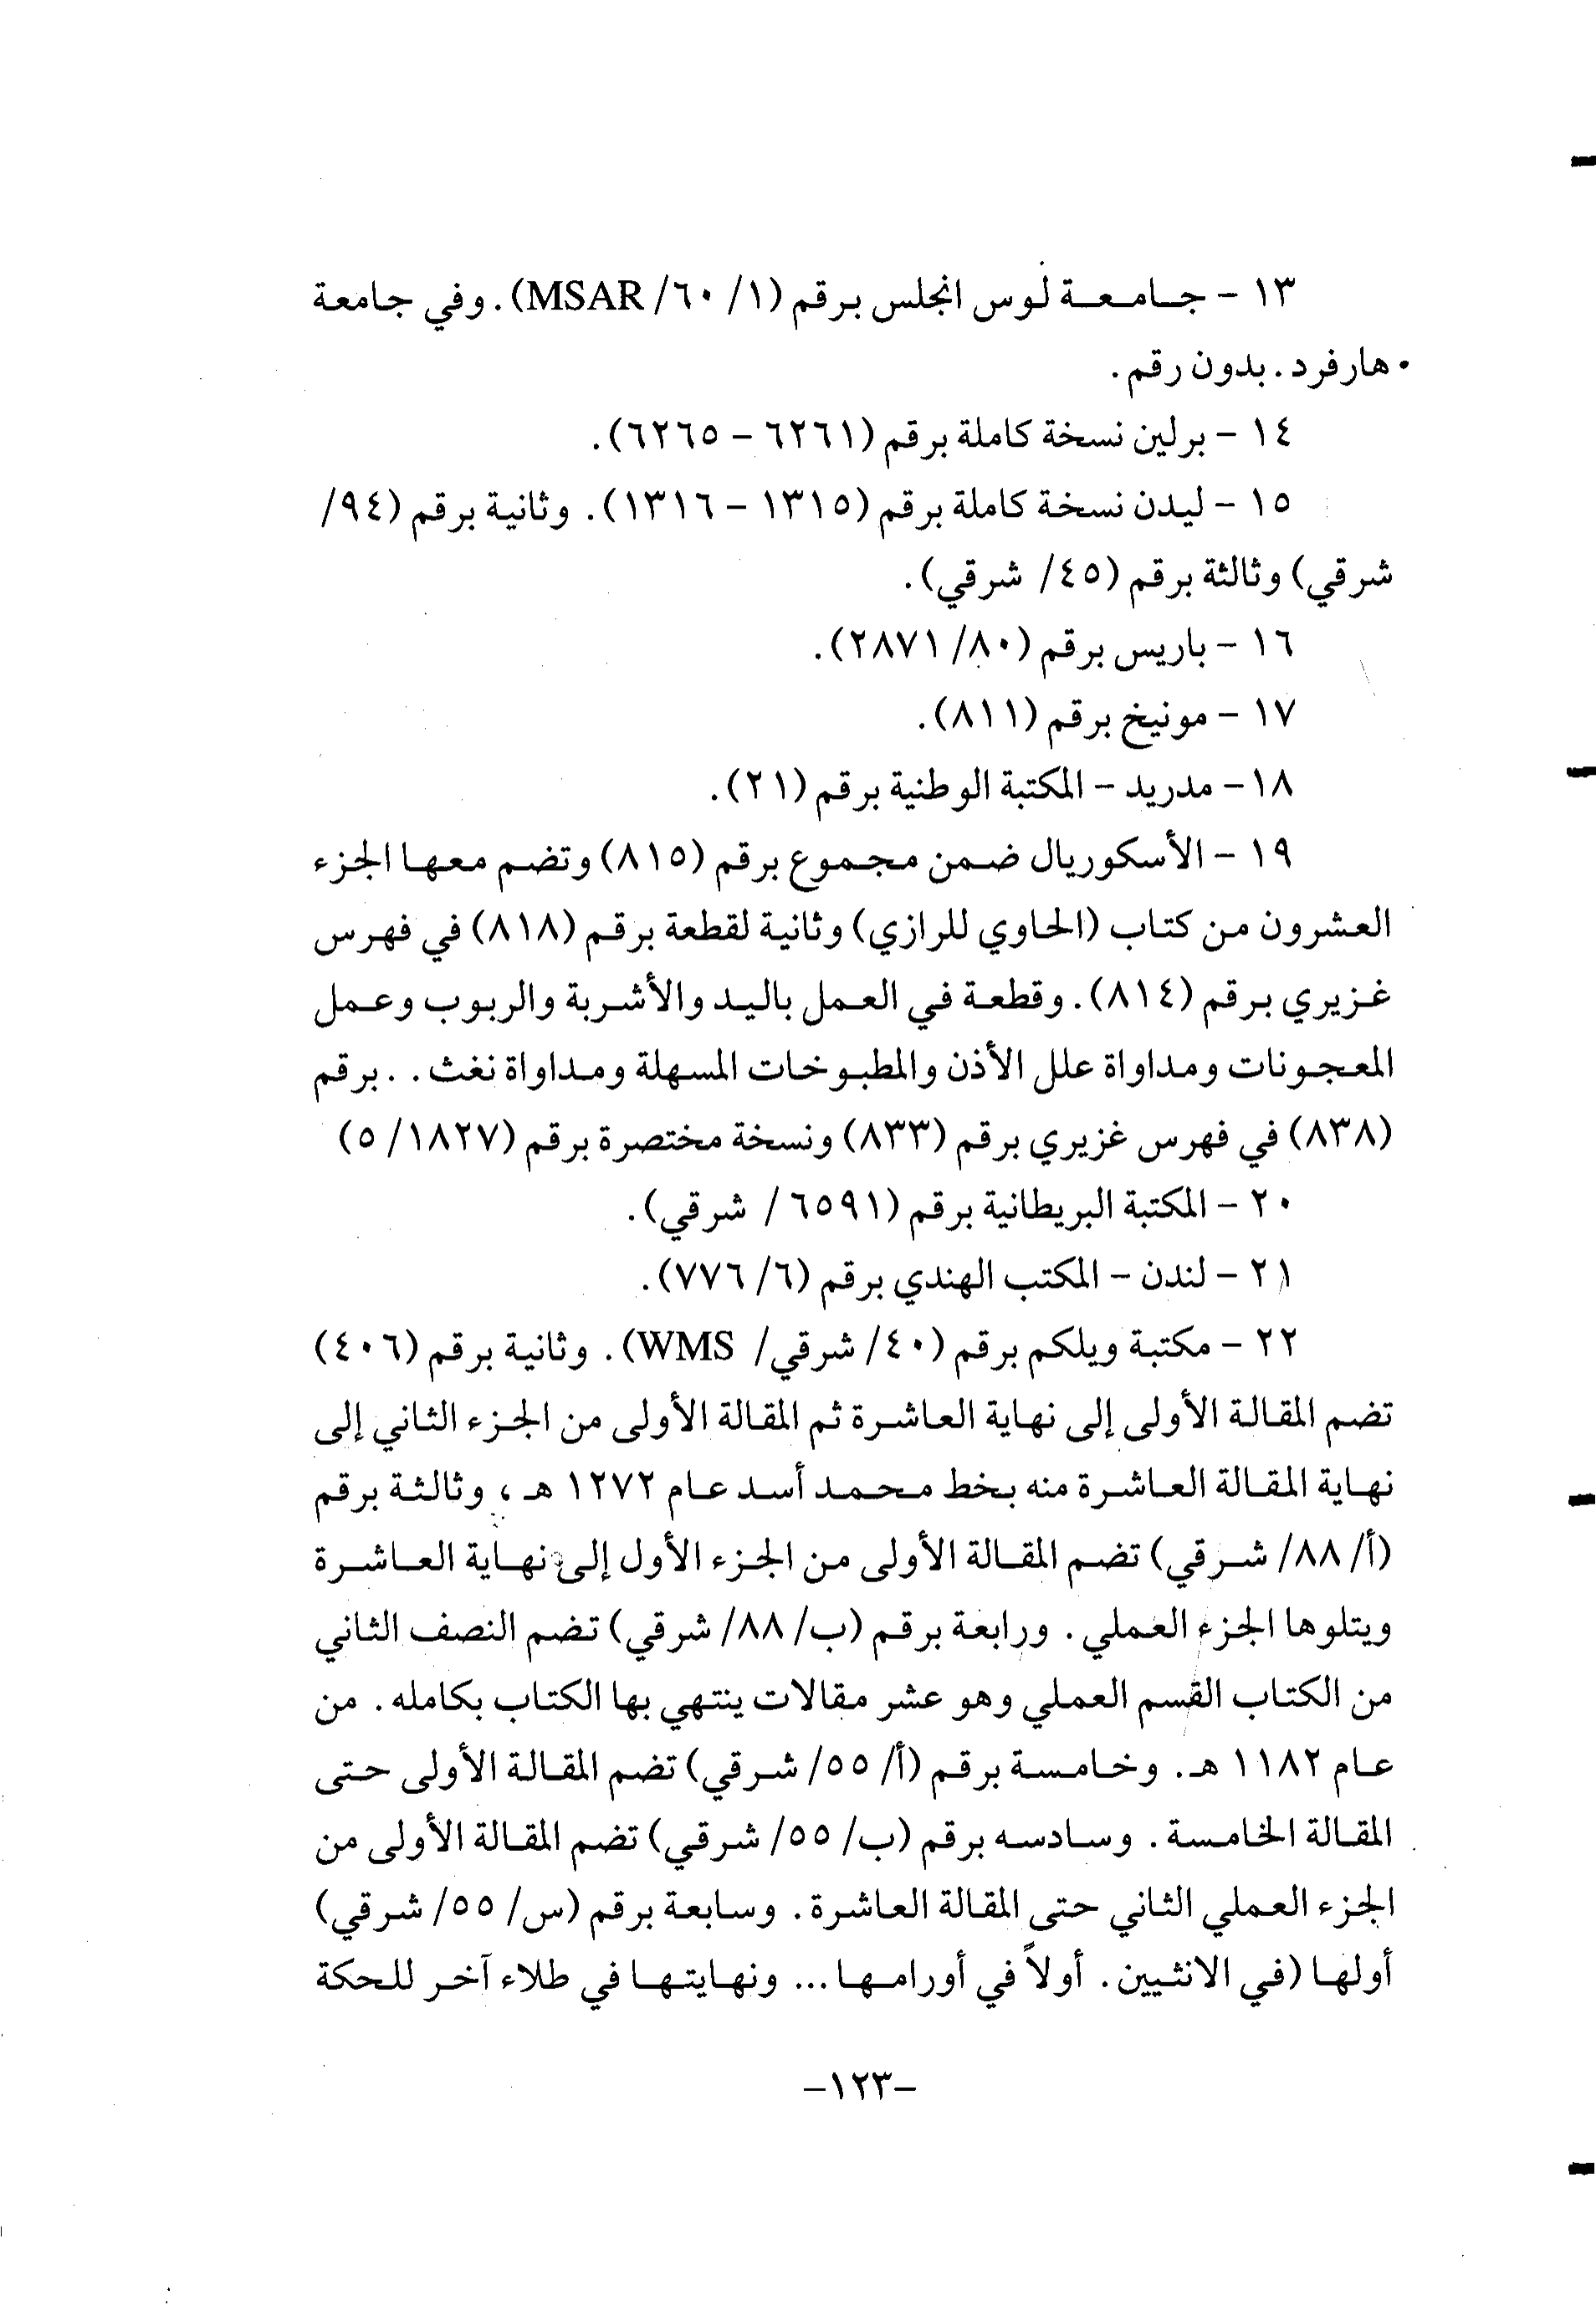 ١٣ - جامعة لوس انجلس برقم (١/ ٦٠/ MSAR). وفي جامعة
هارفرد. بدون رقم.
١٤ - برلين نسخة كاملة برقم (٦٢٦١ - ٦٢٦٥).
١٥ - ليدن نسخة كاملة برقم (١٣١٥ - ١٣١٦). وثانية برقم (٩٤/
شرقي) وثالثة برقم (٤٥/ شرقي).
١٦ - باريس برقم (٨٠/ ٢٨٧١).
١٧ - مونيخ برقم (٨١١).
١٨ - مدريد - المكتبة الوطنية برقم (٢١).
١٩ - الأسكوريال ضمن مجموع برقم (٨١٥) وتضم معها الجزء
العشرون من كتاب (الحاوي للرازي) وثانية لقطعة برقم (٨١٨) في فهرس
غزيري برقم (٨١٤). وقطعة في العمل باليد والأشربة والربوب وعمل
المعجونات ومداواة علل الأذن والمطبوخات المسهلة ومداواة نغث. . برقم
(٨٣٨) في فهرس غزيري برقم (٨٣٣) ونسخة مختصرة برقم (١٨٢٧/ ٥)
٢٠ - المكتبة البريطانية برقم (٦٥٩١/ شرقي).
٢١ - لندن - المكتب الهندي برقم (٦/ ٧٧٦).
٢٢ - مكتبة ويلكم برقم (٤٠/ شرقي/ WMS). وثانية برقم (٤٠٦)
تضم المقالة الأولى إلى نهاية العاشرة ثم المقالة الأولى من الجزء الثاني إلى
نهاية المقالة العاشرة منه بخط محمد أسد عام ١٢٧٢ هـ، وثالثة برقم
(أ/ ٨٨/ شرقي) تضم المقالة الأولى من الجزء الأول إلى نهاية العاشرة
ويتلوها الجزء العملي. ورابعة برقم (ب/ ٨٨/ شرقي) تضم النصف الثاني
من الكتاب القسم العملي وهو عشر مقالات ينتهي بها الكتاب بكامله. من
عام ١١٨٢ هـ. وخامسة برقم (أ/ ٥٥/ شرقي) تضم المقالة الأولى حتى
المقالة الخامسة. وسادسه برقم (ب/ ٥٥/ شرقي) تضم المقالة الأولى من
الجزء العملي الثاني حتى المقالة العاشرة. وسابعة برقم (س/ ٥٥/ شرقي)
أولها (في الانثيين. أولاً في أورامها... ونهايتها في طلاء آخر للحكة
-١٢٣-